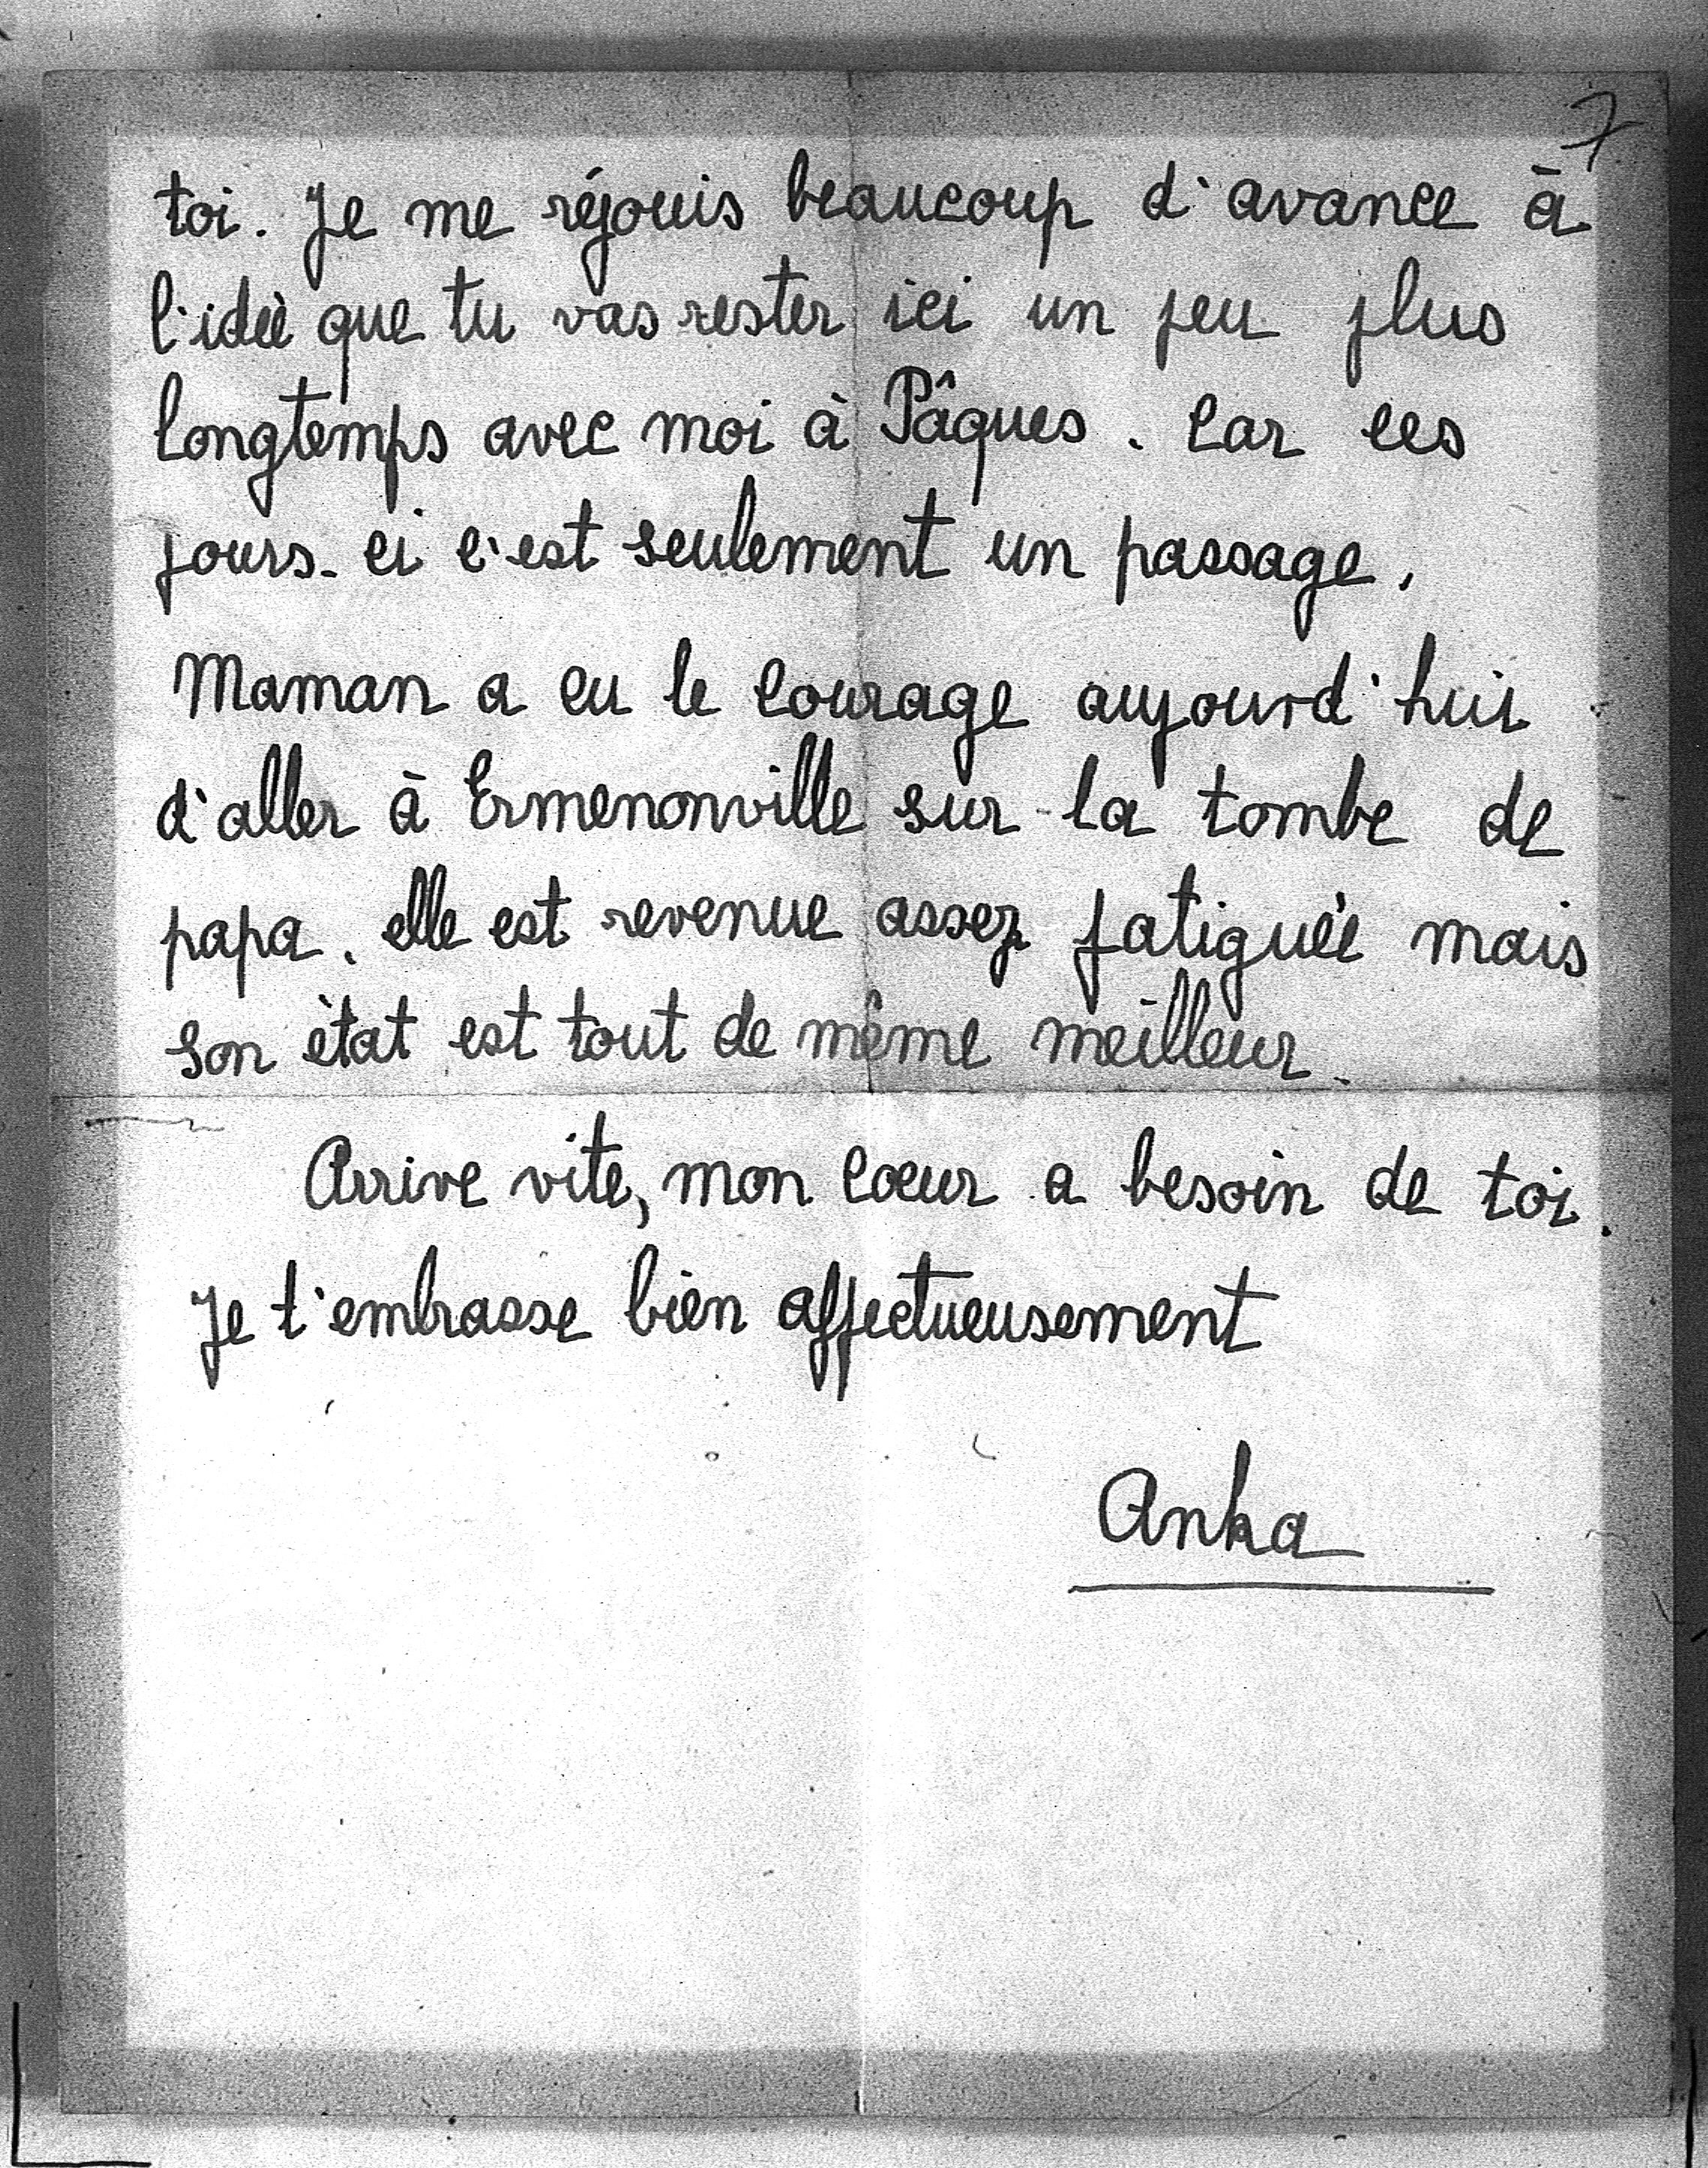 7
toi. Je me réjouis beaucoup d'avance à
l'idée que tu vas rester ici un peu plus
longtemps avec moi à Pâques. Car ces
jours-ci c'est seulement un passage.
Maman a eu le courage aujourd'hui
d'aller à Ermenonville sur la tombe de
papa. elle est revenue assez fatiguée mais
son état est tout de même meilleur.
Arrive vite, mon coeur a besoin de toi.
Je t'embrasse bien affectueusement
Anka